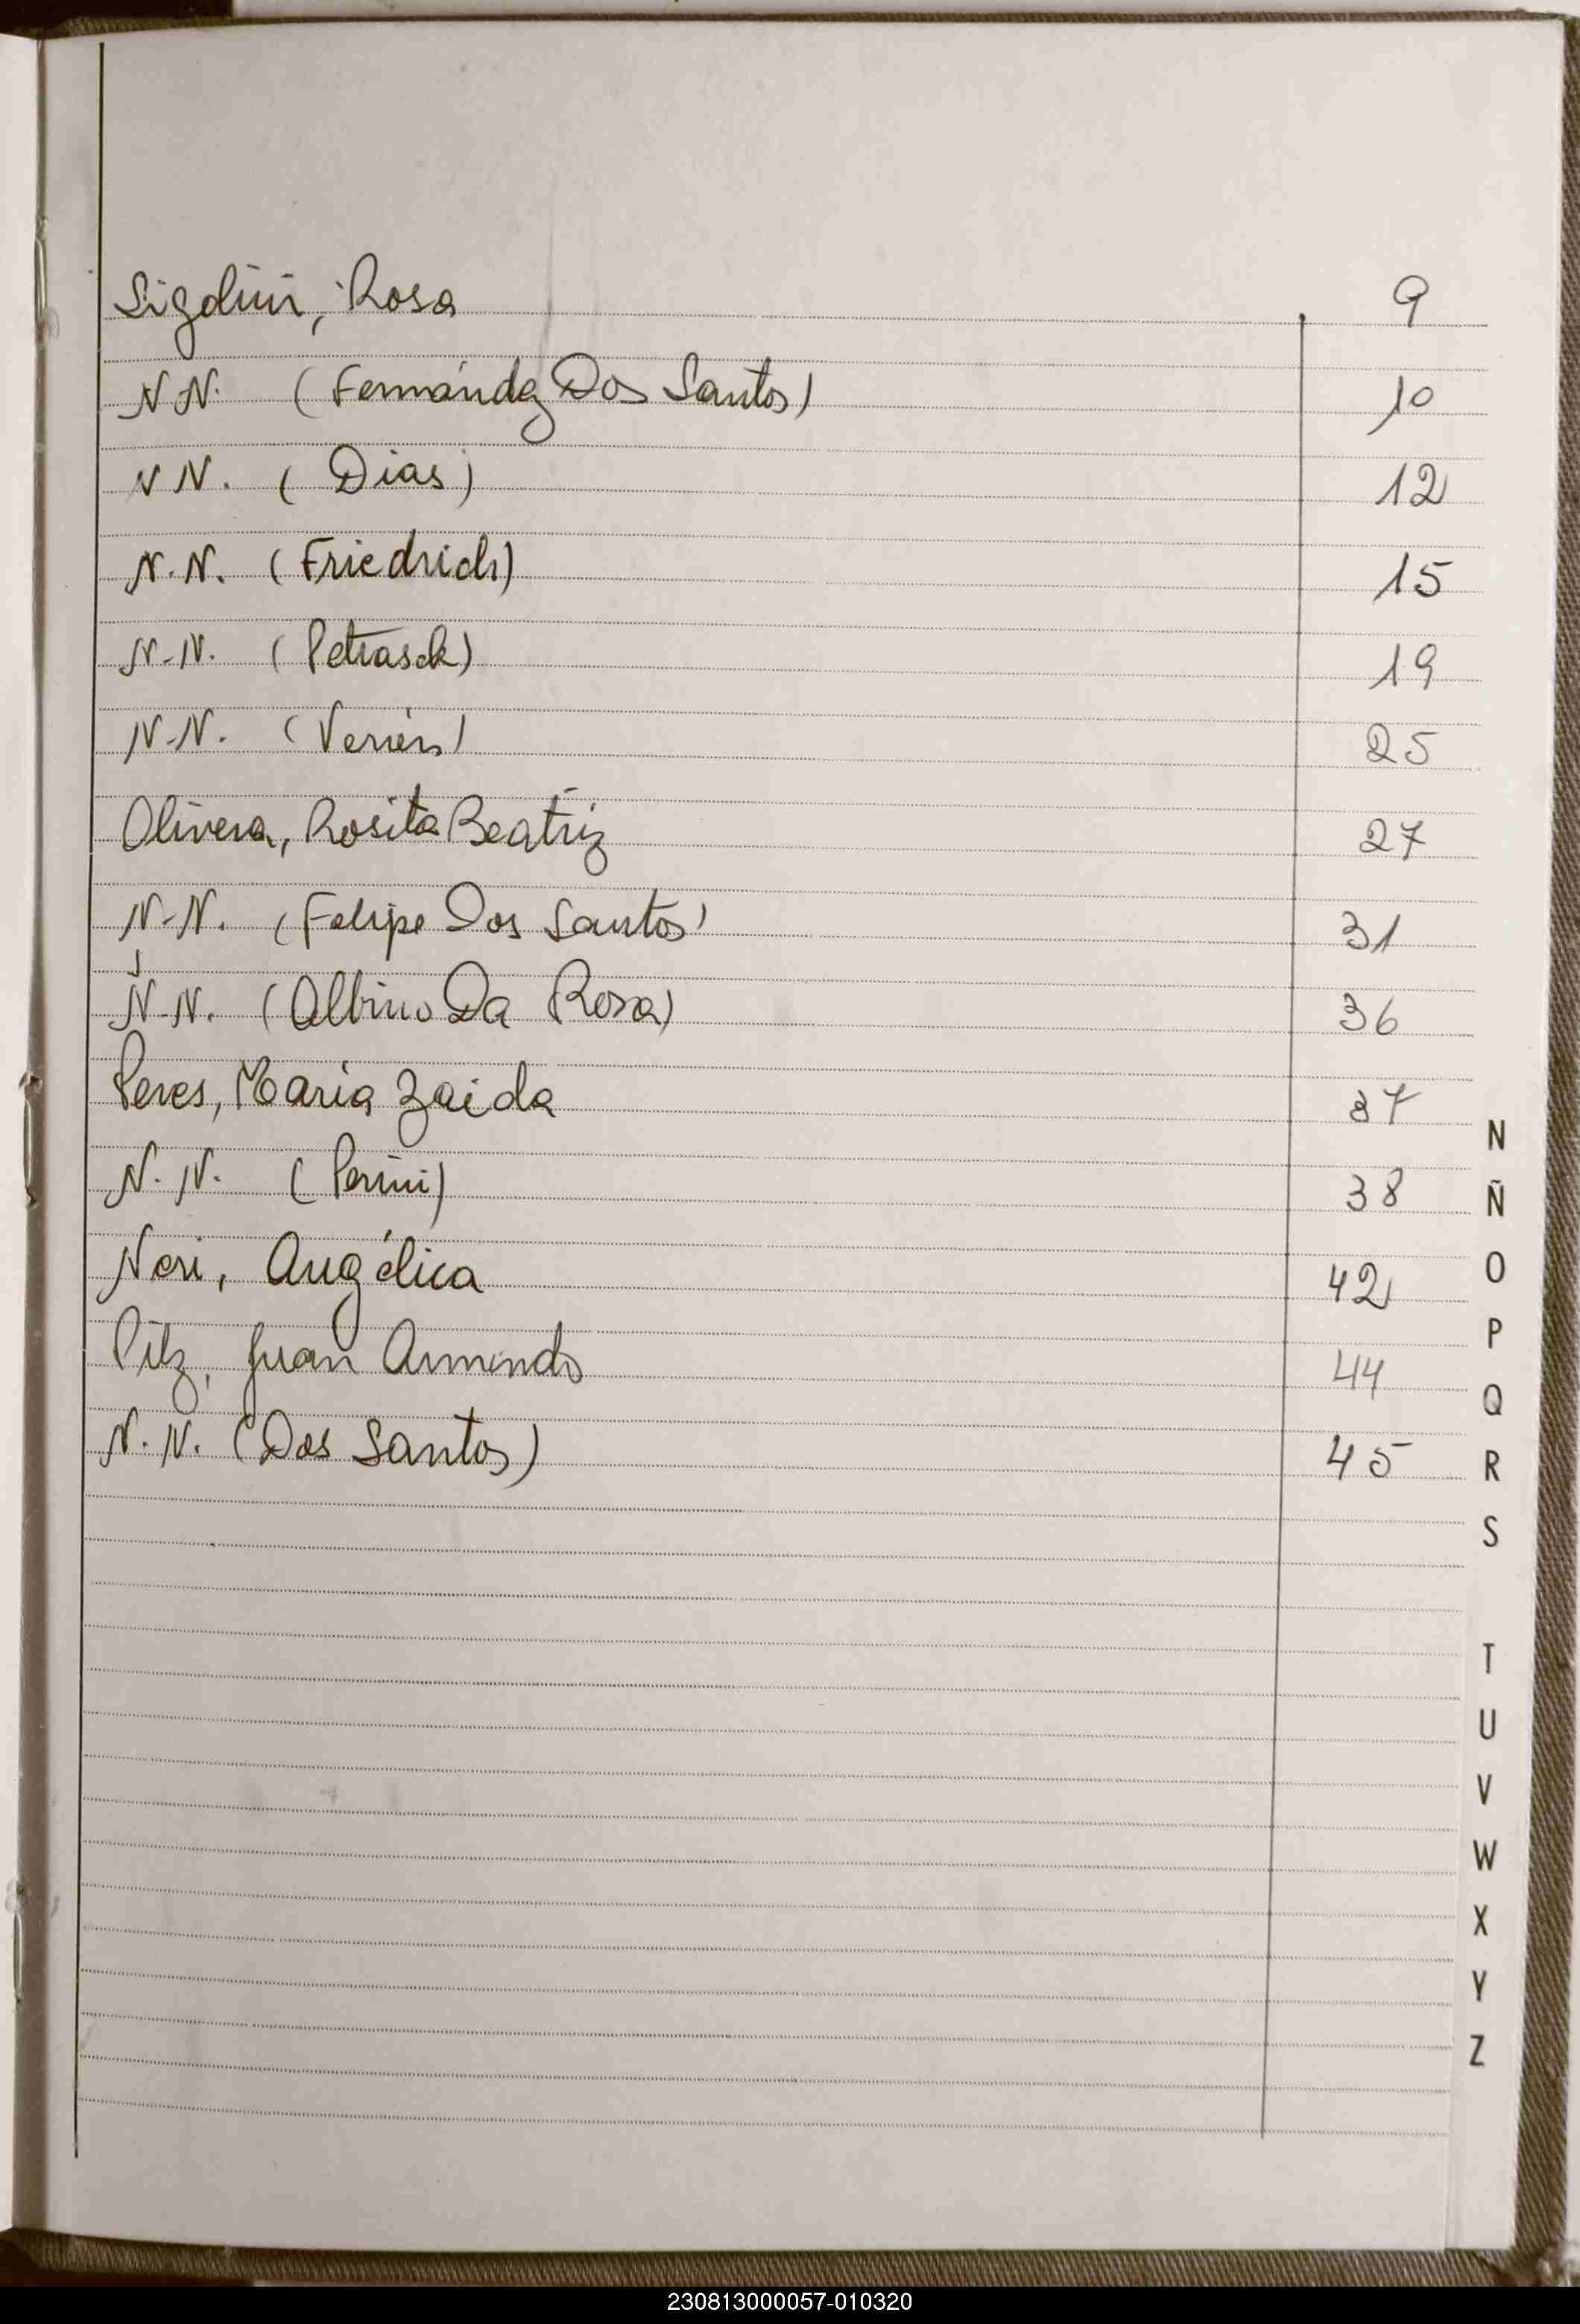 Sigolini, Rosa 9
N.N. (Fernández Dos Santos) 10
N N. (Dias) 12
N.N. (Friedrich) 15
N-N. (Petrasek) 19
N-N. 25
Olivera, Rosita Beatriz 27
N-N. (Felipe Dos Santos) 31
N-N. (Albino Da Rosa) 36
Peres, María Zaida 37
N. N. (Perini) 38
Neri, Angélica 42
Pilz, Juan Armindo 44
N. N. (Dos Santos) 45
N
Ñ
O
P
Q
R
S
T
U
V
W
X
Y
Z
230813000057-010320